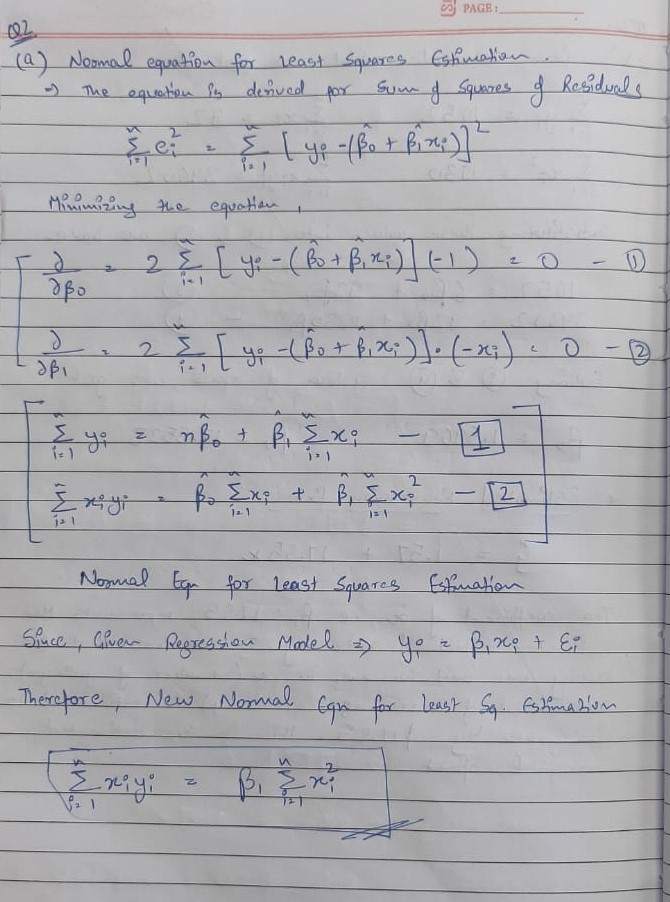 PAGE:
Q2
(a) Normal equation for Least Squares Estimation.
⇒ The equation is derived for Sum of Squares of Residuals
∑_{i=1}^{n} e_i^2 = ∑_{i=1}^{n} [ y_i - (β̂_0 + β̂_1 x_i) ]^2
Minimizing the equation,
∂/∂β_0 = 2 ∑_{i=1}^{n} [ y_i - (β̂_0 + β̂_1 x_i) ] (-1) = 0 - ①
∂/∂β_1 = 2 ∑_{i=1}^{n} [ y_i - (β̂_0 + β̂_1 x_i) ] . (-x_i) = 0 - ②
∑_{i=1}^{n} y_i = nβ̂_0 + β̂_1 ∑_{i=1}^{n} x_i - 1
∑_{i=1}^{n} x_i y_i = β̂_0 ∑_{i=1}^{n} x_i + β̂_1 ∑_{i=1}^{n} x_i^2 - 2
Normal Eqn for Least Squares Estimation
Since, Given Regression Model ⇒ y_i = β_1 x_i + ε_i
Therefore, New Normal Eqn for Least Sq. Estimation
∑_{i=1}^{n} x_i y_i = β_1 ∑_{i=1}^{n} x_i^2